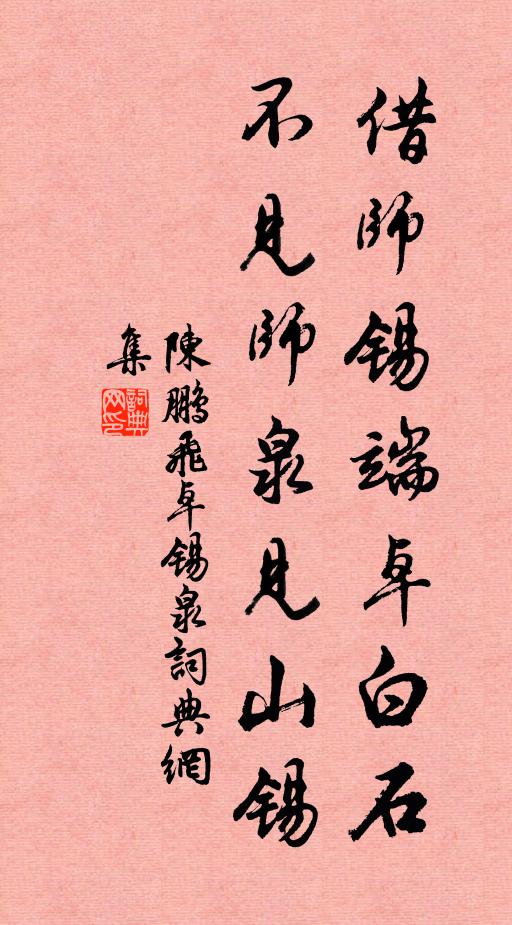 借師錫端卓白石
不見師泉見山錫
陳鵬飛卓錫泉詞典網
集
詞典
网印